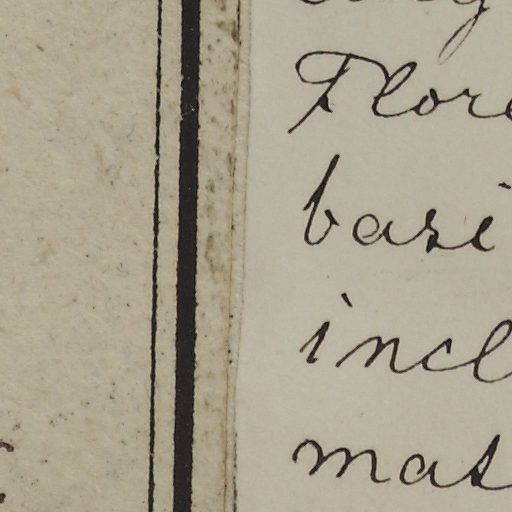 Flore
basi
incl
mat